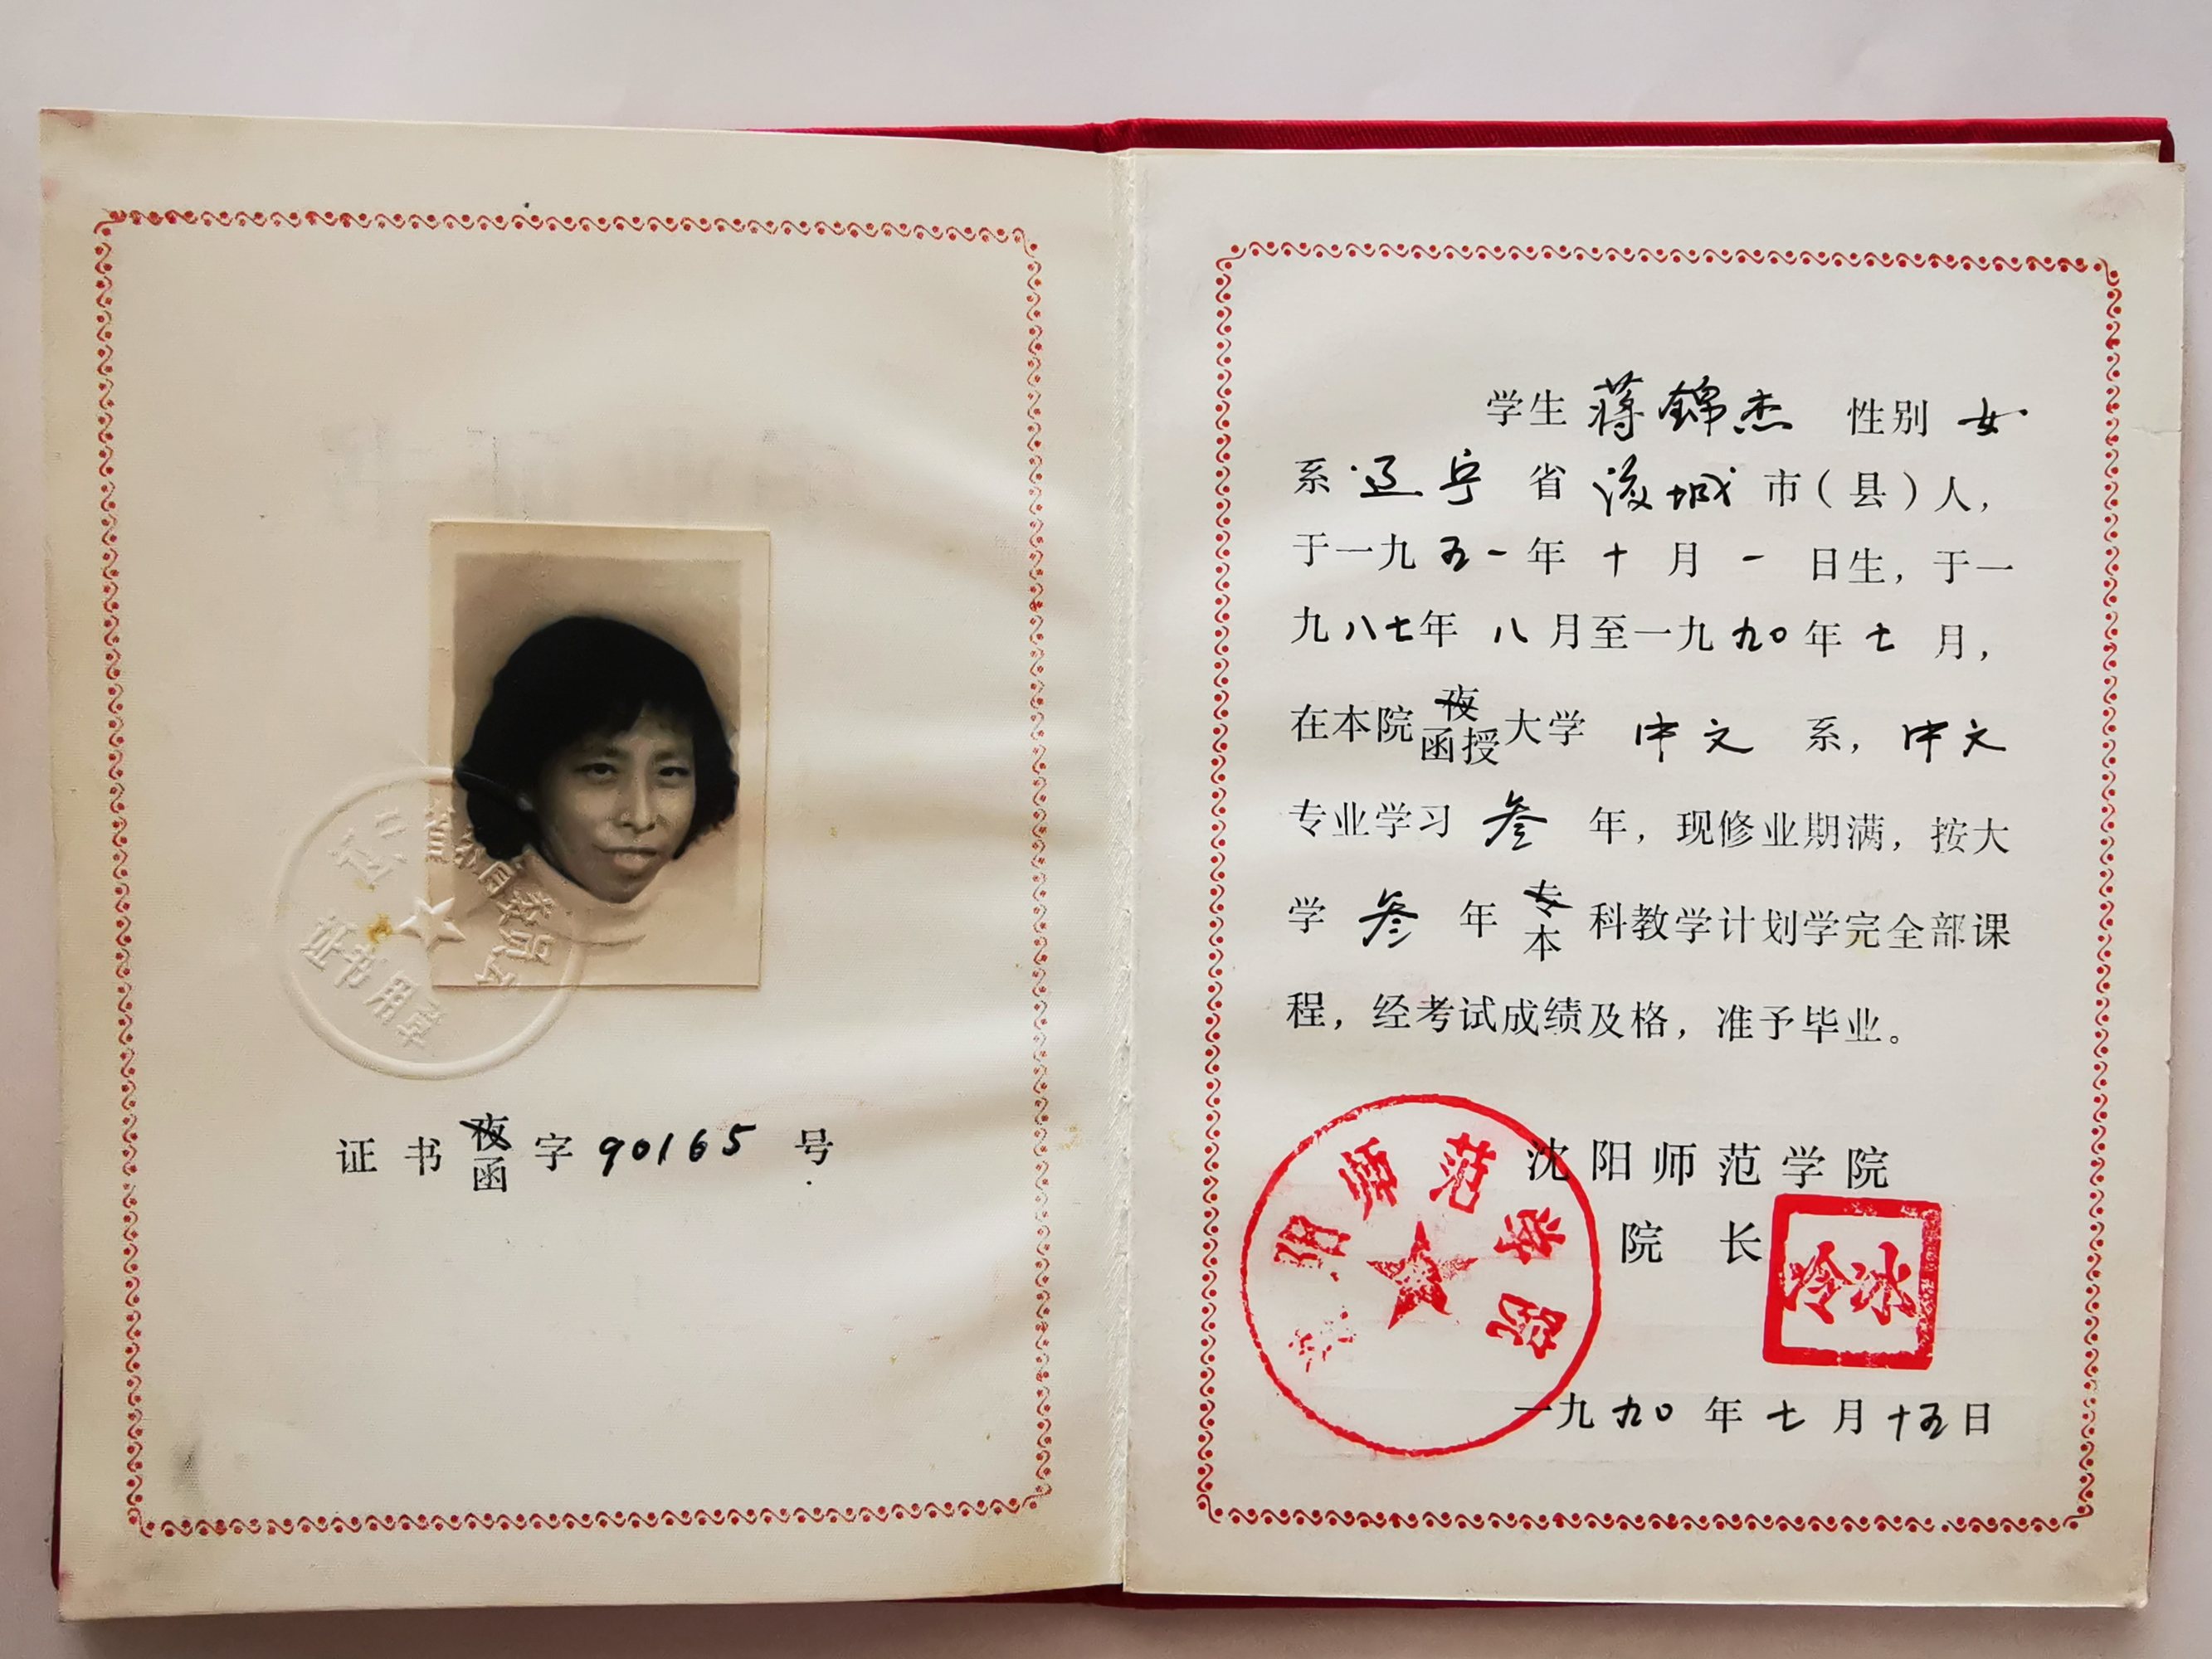 辽宁省教育委员会
证书用章
证书夜函字90165号
学生 蒋錦杰 性别 女
系 辽宁 省 凌城 市(县)人,
于一九五一年十月一日生,于一
九八七年八月至一九九〇年七月,
在本院夜函授大学 中文 系,中文
专业学习 叁 年,现修业期满,按大
学 叁 年 专本 科教学计划学完全部课
程,经考试成绩及格,准予毕业。
沈阳师范学院
沈阳师范学院
院 长
冷冰
一九九〇年七月十五日